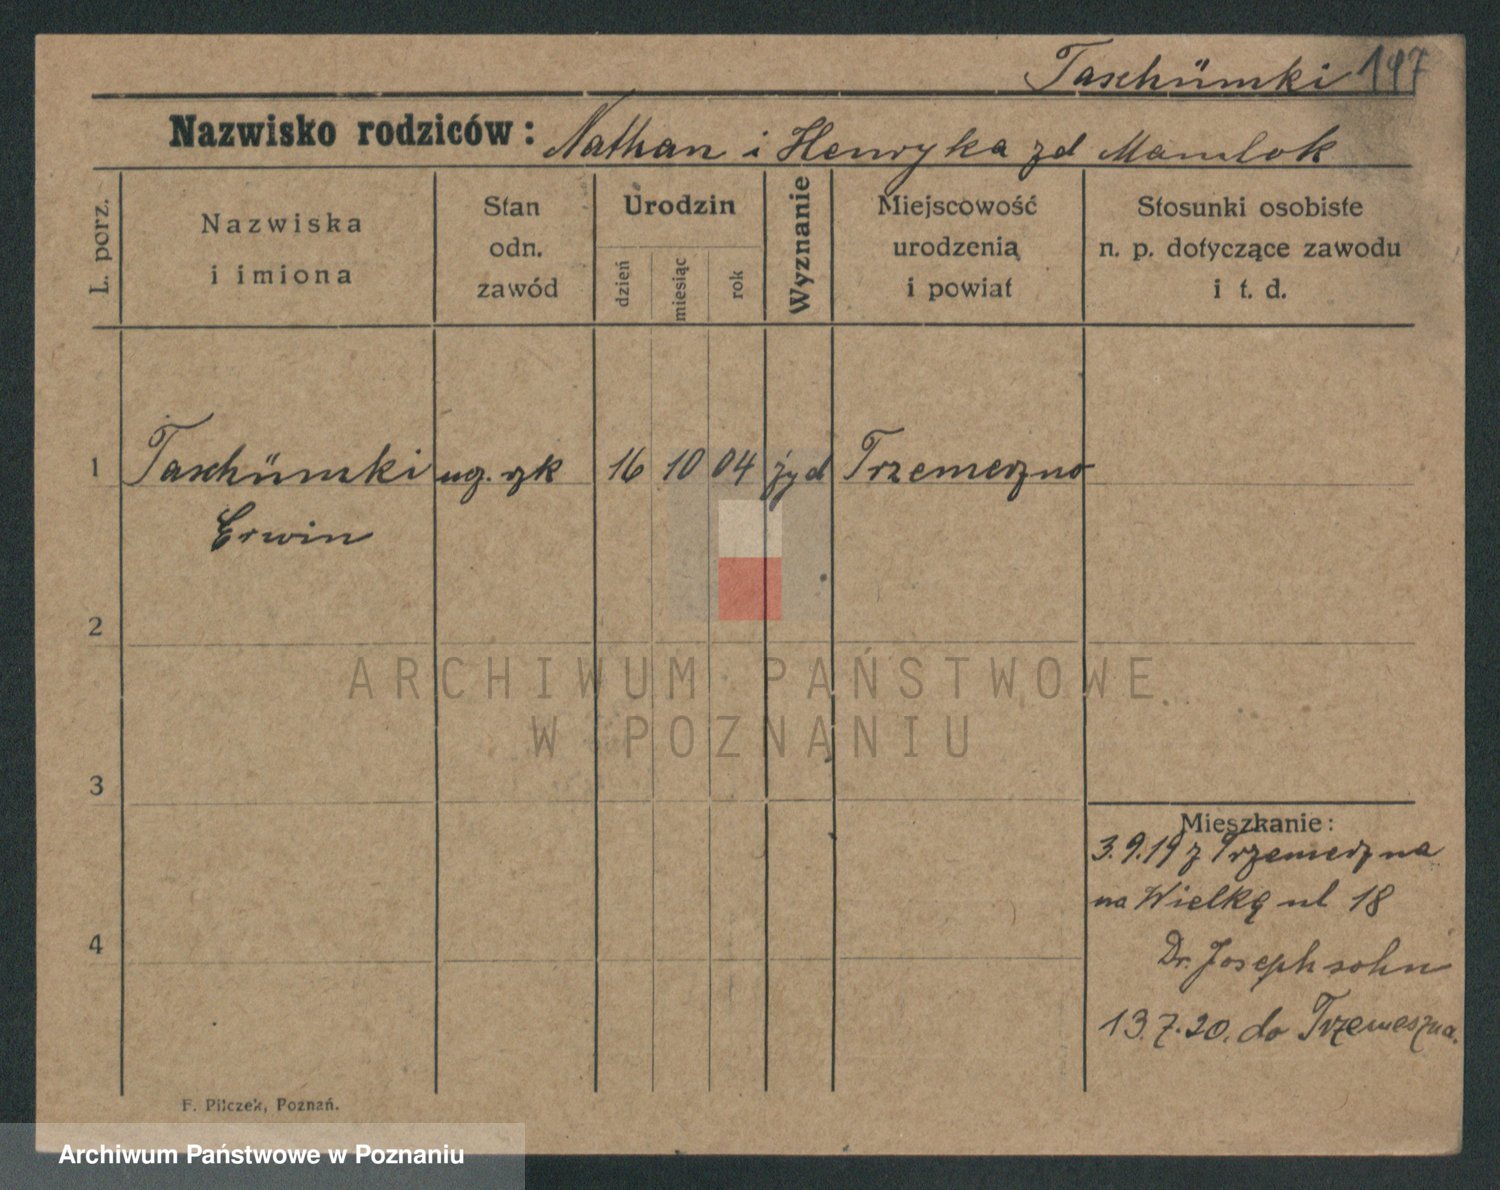 Taschümki 197
Nazwisko rodziców: Nathan i Henryka zd Mamlok
L. porz.
Nazwiska
i imiona
Stan
odn.
zawód
Urodzin
dzień
miesiąc
rok
Wyznanie
Miejscowość
urodzenią
i powiat
Stosunki osobiste
n. p. dotyczące zawodu
i t. d.
1 Taschümki ucz. 16 10 04 żyd Trzemeszno
Erwin
2
ARCHIWUM PAŃSTWOWE
W POZNANIU
3
Mieszkanie:
3.9.19 z Trzemeszna
na Wielką ul 18
4
Dr. Josephsohn
13.7.20. do Trzemeszna.
F. Pilczek, Poznań.
Archiwum Państwowe w Poznaniu